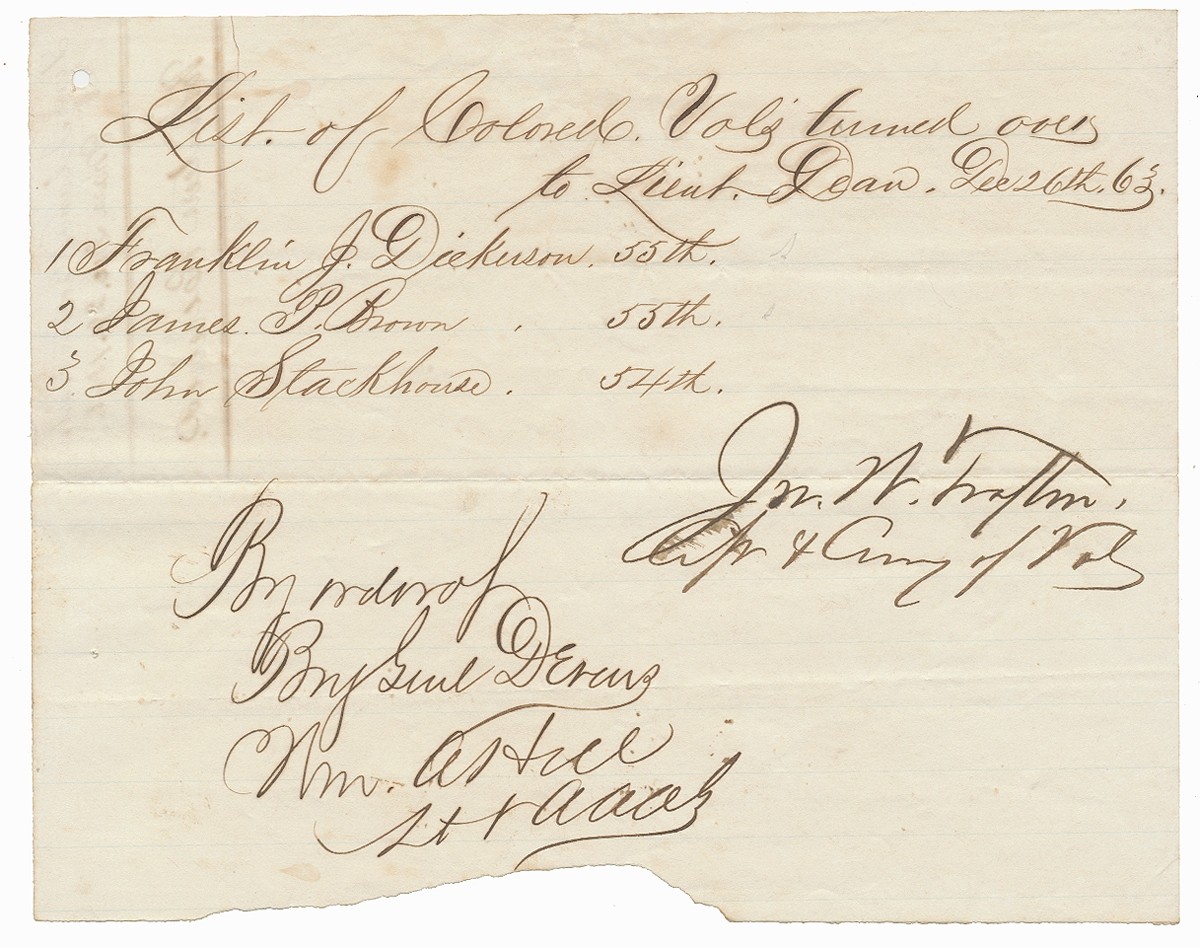 List. of Colored. Vols turned over
to Lieut. Dean. Dec 26th. 63.
1 Franklin J. Dickerson. 55th.
2 James. P. Brown . 55th.
3. John Stackhouse . 54th.
Jn. W. Trafton.
Capt & Comy of Vols
By order of
Brig Genl Devens
Wm. A Hill
Lt & AAAG